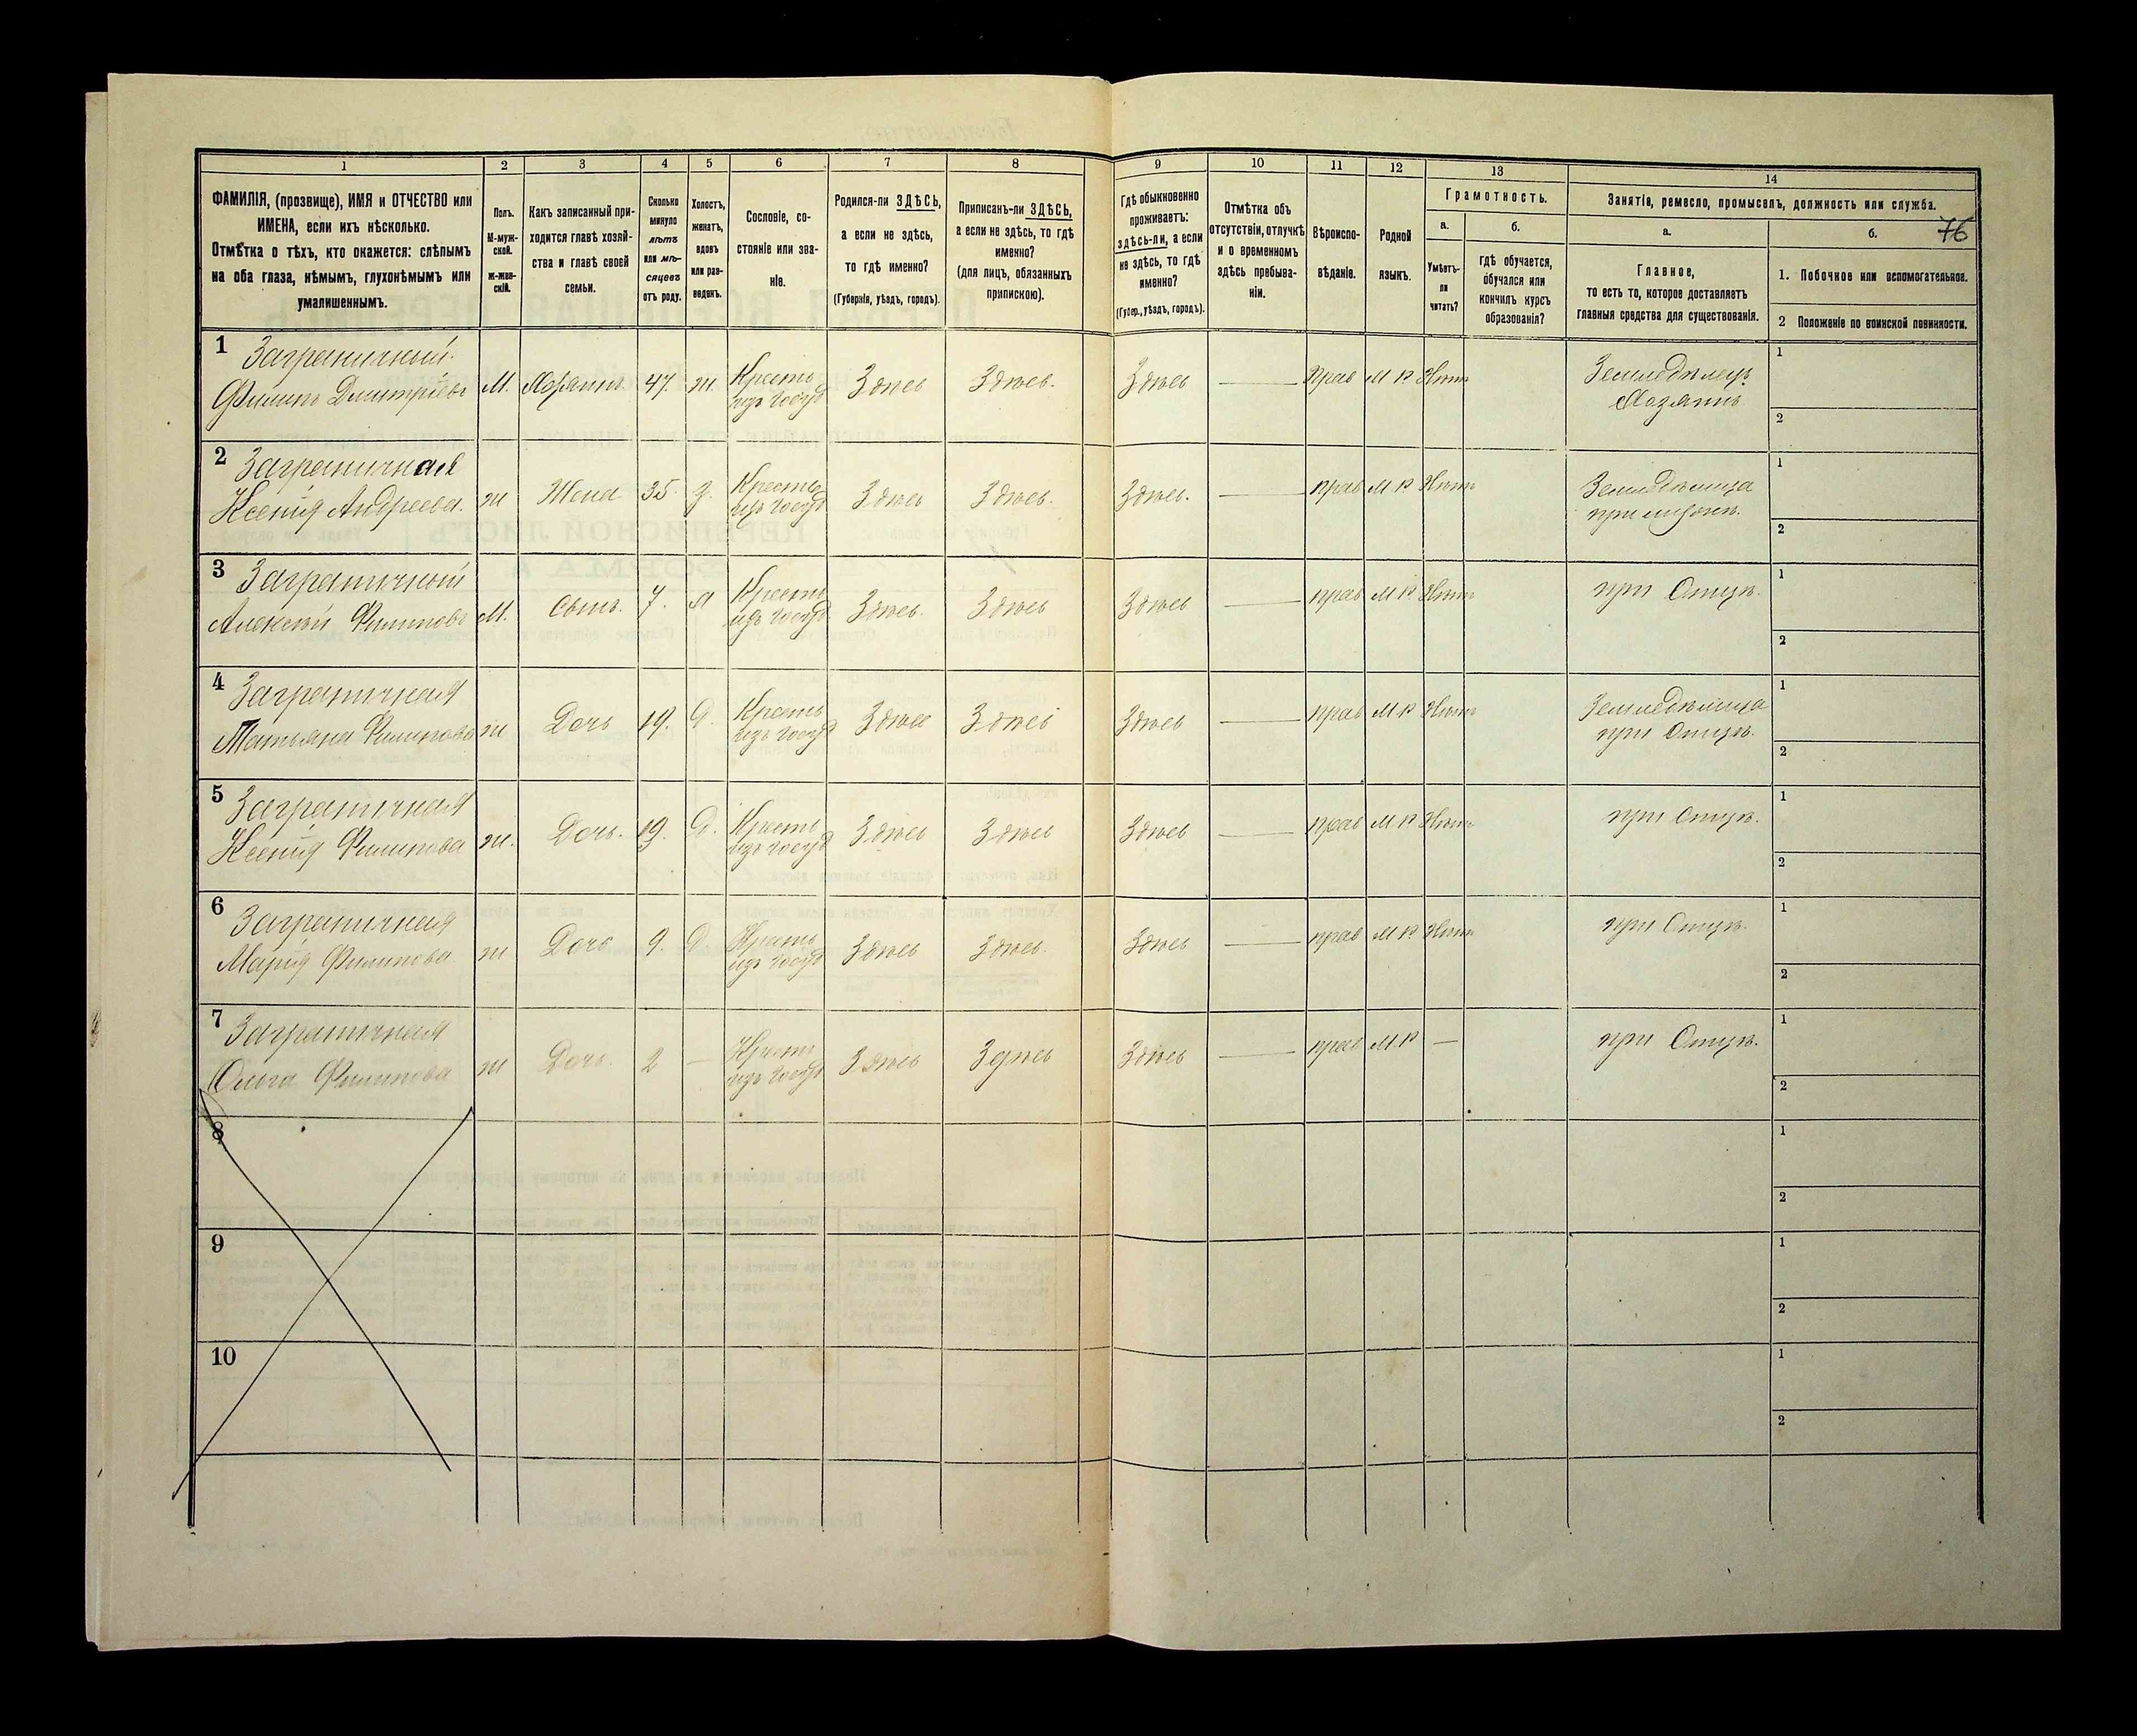 76
1
2
3
4
5
6
7
8
9
10
11
12
13
14
ФАМИЛІЯ, (прозвище), ИМЯ и ОТЧЕСТВО или
ИМЕНА, если ихъ нѣсколько.
Отмѣтка о тѣхъ, кто окажется: слѣпымъ
на оба глаза, нѣмымъ, глухонѣмымъ или
умалишеннымъ.
Полъ.
М-муж-
ской.
ж-жен-
скій.
Какъ записанный при-
ходится главѣ хозяй-
ства и главѣ своей
семьи.
Сколько
минуло
лѣтъ
или мѣ-
сяцевъ
отъ роду.
Холостъ,
женатъ,
вдовъ
или раз-
веденъ.
Сословіе, со-
стояніе или зва-
ніе.
Родился-ли ЗДѢСЬ,
а если не здѣсь,
то гдѣ именно?
(Губернія, уѣздъ, городъ).
Приписанъ-ли ЗДѢСЬ,
а если не здѣсь, то гдѣ
именно?
(для лицъ, обязанныхъ
припискою).
Гдѣ обыкновенно
проживаетъ:
здѣсь-ли, а если
не здѣсь, то гдѣ
именно?
(Губер., уѣздъ, городъ).
Отмѣтка объ
отсутствіи, отлучкѣ
и о временномъ
здѣсь пребыва-
ніи.
Вѣроиспо-
вѣданіе.
Родной
языкъ.
Грамотность.
а.
Умѣетъ-
ли
читать?
б.
гдѣ обучается,
обучался или
кончилъ курсъ
образованія?
Занятіе, ремесло, промыселъ, должность или служба.
а.
Главное,
то есть то, которое доставляетъ
главныя средства для существованія.
б.
1. Побочное или вспомогательное.
2 Положеніе по воинской повинности.
1 Заграничный
Филипъ Дмитріевъ М. Хозяинъ 47. ж. Кресть изъ госуд Здѣсь Здѣсь. Здѣсь — прав М Р Нѣтъ Земледѣлецъ Хозяинъ 1 2
2 Заграничная
Ксенія Андреева. ж Жена 35. з. Кресть изъ госуд Здѣсь Здѣсь. Здѣсь. — прав М Р Нѣтъ Земледѣлица при мужѣ. 1 2
3 Заграничный
Алексѣй Филиповъ М. Сынъ. 7. х Кресть изъ госуд Здѣсь. Здѣсь Здѣсь — прав М Р Нѣтъ при Отцѣ. 1 2
4 Заграничная
Татьяна Филипова ж Дочь 19. д. Кресть изъ госуд Здѣсь Здѣсь Здѣсь — прав М Р Нѣтъ Земледѣлица при Отцѣ. 1 2
5 Заграничная
Ксенія Филипова ж. Дочь. 19. д. Кресть изъ госуд Здѣсь Здѣсь Здѣсь — прав М Р Нѣтъ при Отцѣ. 1 2
6 Заграничная
Марія Филипова ж Дочь 9. д Кресть изъ госуд Здѣсь Здѣсь. Здѣсь — прав М Р Нѣтъ при Отцѣ. 1 2
7 Заграничная
Ольга Филипова ж Дочь. 2 — Кресть изъ госуд Здѣсь Здѣсь Здѣсь — прав М.Р — при Отцѣ. 1 2
8 1 2
9 1 2
10 1 2